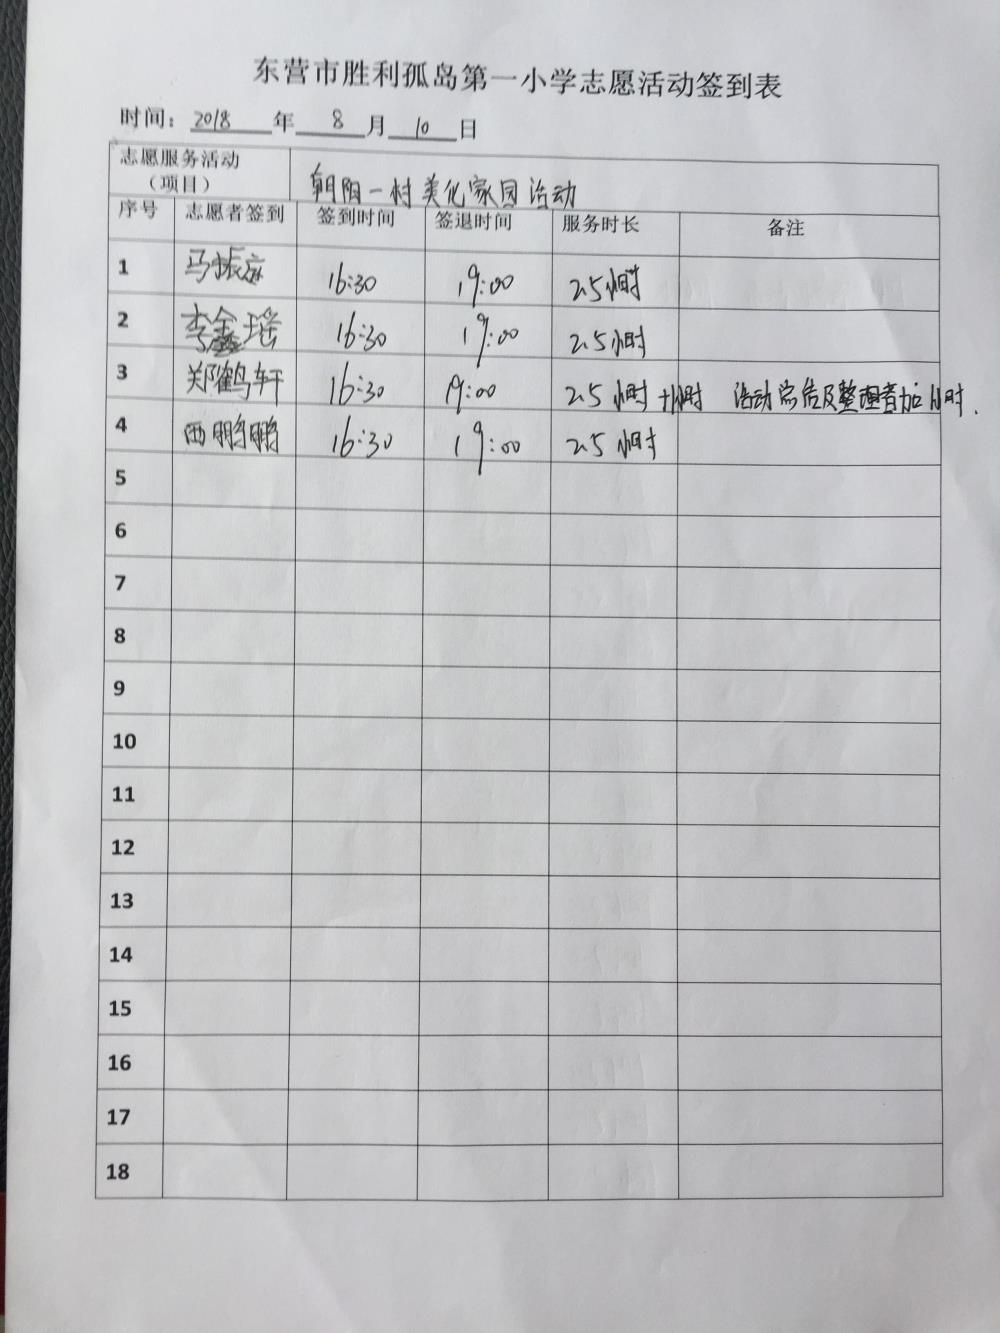 东营市胜利孤岛第一小学志愿活动签到表
时间：2018年 8月10日
志愿服务活动（项目） 朝阳一村美化家园活动
序号 志愿者签到 签到时间 签退时间 服务时长 备注
1 马振 16:30 19:00 2.5小时
2 李鑫瑶 16:30 19:00 2.5小时
3 郑鹤轩 16:30 19:00 2.5小时 +1小时 活动 及整理者加1小时.
4 西鹏鹏 16:30 19:00 2.5小时
5
6
7
8
9
10
11
12
13
14
15
16
17
18